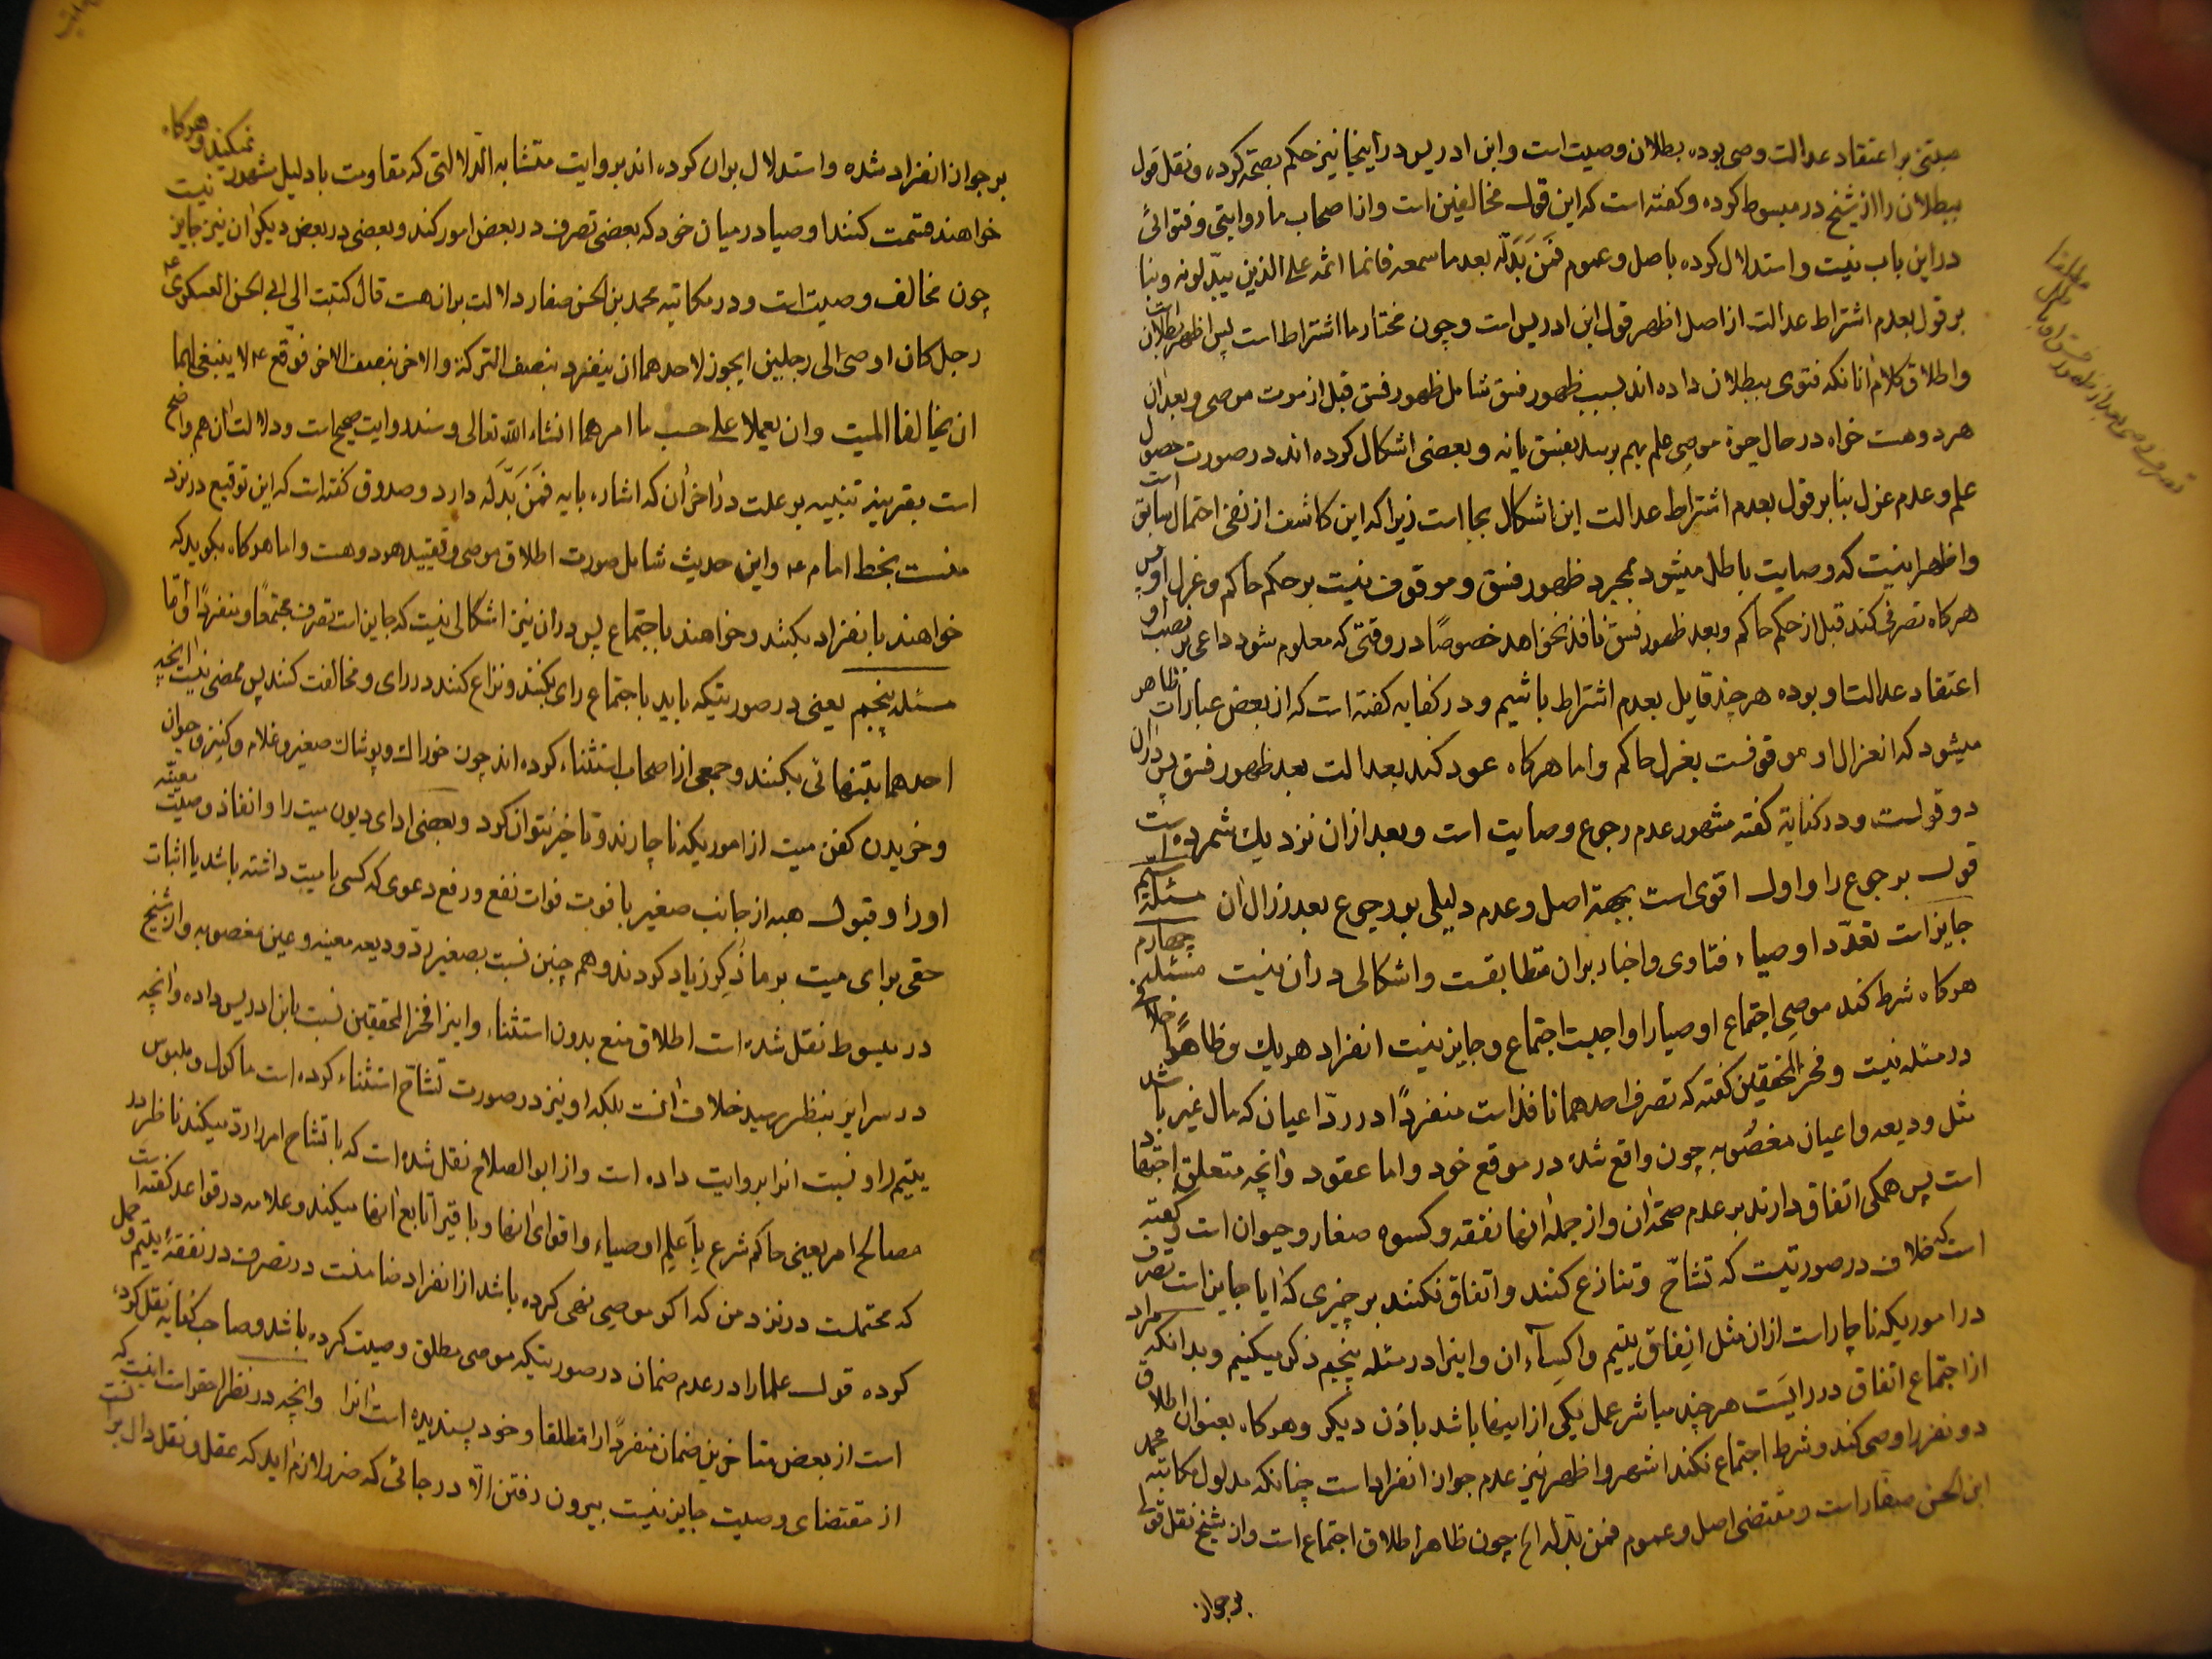 مبتنی بر اعتقاد عدالت وصی بوده بطلان وصیت است و ابن ادریس در اینجا نیز حکم بصحّه کرده و نقل قول
ببطلان را از شیخ در مبسوط کرده و کفته است که این قول مخالفین است و از اصحاب ما روایتی و فتوائی
در این باب نیست و استدلال کرده باصل و عموم فَمَن بَدَّلَه بعد ما سمعه فانما اثمه علی الذین یبدّلونه و بنا
بر قول بعدم اشتراط عدالت از اصل اظهر قول ابن ادریس است و چون مختار ما اشتراط است پس اظهر بطلان است
و اطلاق کلام آنانکه فتوی ببطلان داده اند بسبب ظهور فسق شامل ظهور فسق قبل از موت موصی و بعد ازان
هر دو هست خواه در حال حیوة موصی علم بهم برسد بفسق یا نه و بعضی اشکال کرده اند در صورت حصول
علم و عدم عزل بنا بر قول بعدم اشتراط عدالت این اشکال بجا است زیرا که این کاشف از نفی احتمال سابق است
و اظهر اینست که وصایت باطل میشود بمجرد ظهور فسق و موقوف نیست بر حکم حاکم و عزل او پس
هرکاه تصرفی کند قبل از حکم حاکم و بعد ظهور فسق نافذ نخواهد خصوصًا در وقتی که معلوم شود داعی بر نصب او
اعتقاد عدالت او بوده هر چند قایل بعدم اشتراط باشیم و در کفایه کفته است که از بعض عبارات ظاهر
میشود که انعزال او موقوفست بعزل حاکم و اما هرکاه عود کند بعدالت بعد ظهور فسق پس دران
دو قولست و در کفایة کفته مشهور عدم رجوع وصایت است و بعد ازان نزدیک شمرده است
قول برجوع را و اول اقوی است بجهة اصل و عدم دلیلی بر رجوع بعد زوال آن مسئلة
جایز است تعدّد اوصیاء فتاوی و اخبار بران متطابقست و اشکالی در آن نیست مسئله چهارم
هرکاه شرط کند موصی اجتماع اوصیا را واجبست اجتماع و جایز نیست انفراد هریک و ظاهرًا خلافی
در مسئله نیست و فخر المحققین کفته که تصرف احدهما نافذ است منفردًا در ردّ اعیان که مال غیر باشد
مثل ودیعه و اعیان مغصوبه چون واقع شده در موقع خود و اما عقود و آنچه متعلق
است پس همکی اتفاق دارند بر عدم صحت آن و از جمله آنها نفقه و کسوه صغار و حیوان است و کفته
است که خلاف در صورتیست که تشاحّ و تنازع کنند و اتفاق نکنند بر چیزی که آیا جایز است تصرف
در اموریکه ناچار است ازان مثل انفاق یتیم و اکساء ان و اینرا در مسئله پنجم ذکر میکنیم و بدانکه مراد
از اجتماع اتفاق در رایست هر چند مباشر عمل یکی از اینها باشد باذن دیکر و هرکاه بعنوان اطلاق
دو نفر را وصی کند و شرط اجتماع نکند اشهر و اظهر نیز عدم جواز انفراد است چنانکه مدلول مکاتبه محمد
ابن الحسن صفار است و مقتضی اصل و عموم فمن بدّله الخ چون ظاهر اطلاق اجتماع است و از شیخ نقل قول
بر جواز
بر جواز انفراد شده و استدلال بران کرده اند بروایت متشابه الدلالتی که مقاومت با دلیل مشهور نمیکند و هرکاه
خواهند قسمت کنند اوصیا در میان خود که بعضی تصرف در بعض امور کند و بعضی در بعض دیکر ان نیز جایز نیست
چون مخالف وصیت است و در مکاتبه محمد بن الحسن صفار دلالت بران هست قال کتبت الی ابی الحسن العسکری ع
رجل کان اوصی الی رجلین ایجوز لاحدهما ان ینفرد بنصف الترکة و الاخر بنصف الاخر فوقّع ع لا ینبغی لهما
ان یخالفا المیت و ان یعملا علی حسب ما امرهما انشاء الله تعالی و سند روایت صحیح است و دلالت آن هم واضح
است بقرینه تنبیه بر علت در آخر آن که اشاره بآیه فَمَن بَدَّلَه دارد و صدوق کفته است که این توقیع در نزد
منست بخط امام ع و این حدیث شامل صورت اطلاق موصی و تقیید هر دو هست و اما هرکاه بکوید که
خواهند بانفراد بکنند و خواهند باجتماع پس دران نیز اشکالی نیست که جایز است تصرف مجتمعًا و منفردًا و اما
مسئله پنجم یعنی در صورتیکه باید باجتماع رای بکنند و نزاع کنند در رای و مخالفت کنند پس ممضی نیست آنچه
احدهما بتنهائی بکنند و جمعی از اصحاب استثناء کرده اند چون خوراک و پوشاک صغیر و غلام و کنیز و حیوان
و خریدن کفن میت از اموریکه ناچارند و تاخیر نتوان کرد و بعضی ادای دیون میت را و انفاذ وصیت معینه
او را و قبول هبه از جانب صغیر با فوت فوات نفع و رفع دعوی که کسی با میت داشته باشد یا اثبات
حقی برای میت بر ما ذُکِرَ زیاد کردند و هم چنین نسبت بصغیر ردّ ودیعه معینه و عین مغصوبه و از شیخ
در مبسوط نقل شده است اطلاق منع بدون استثناء و اینرا فخر المحققین نسبت بابن ادریس داده و آنچه
در سرایر بنظر رسید خلاف آنست بلکه او نیز در صورت تشاحّ استثناء کرده است ماکول و ملبوس
یتیم را و نسبت آنرا بروایت داده است و از ابو الصلاح نقل شده است که با تشاح امر را ردّ میکند ناظر در
مصالح امر یعنی حاکم شرع باعلم اوصیاء و اقوای آنها و باقی را تابع آنها میکند و علامه در قواعد کفته است
که محتملست در نزد من که اکر موصی نهی کرده باشد از انفراد ضامنست در تصرف در نفقه یتیم و حمل
کرده قول علما را در عدم ضمان در صورتیکه موصی مطلق وصیت کرده باشد و صاحب کفایه نقل کرده
است از بعض متاخرین ضمان منفردا را مطلقا و خود پسندیده است آنرا و آنچه در نظر احقر است اینست که
از مقتضای وصیت جایز نیست بیرون رفتن الّا در جائی که ضرر لازم آید که عقل و نقل دال بر